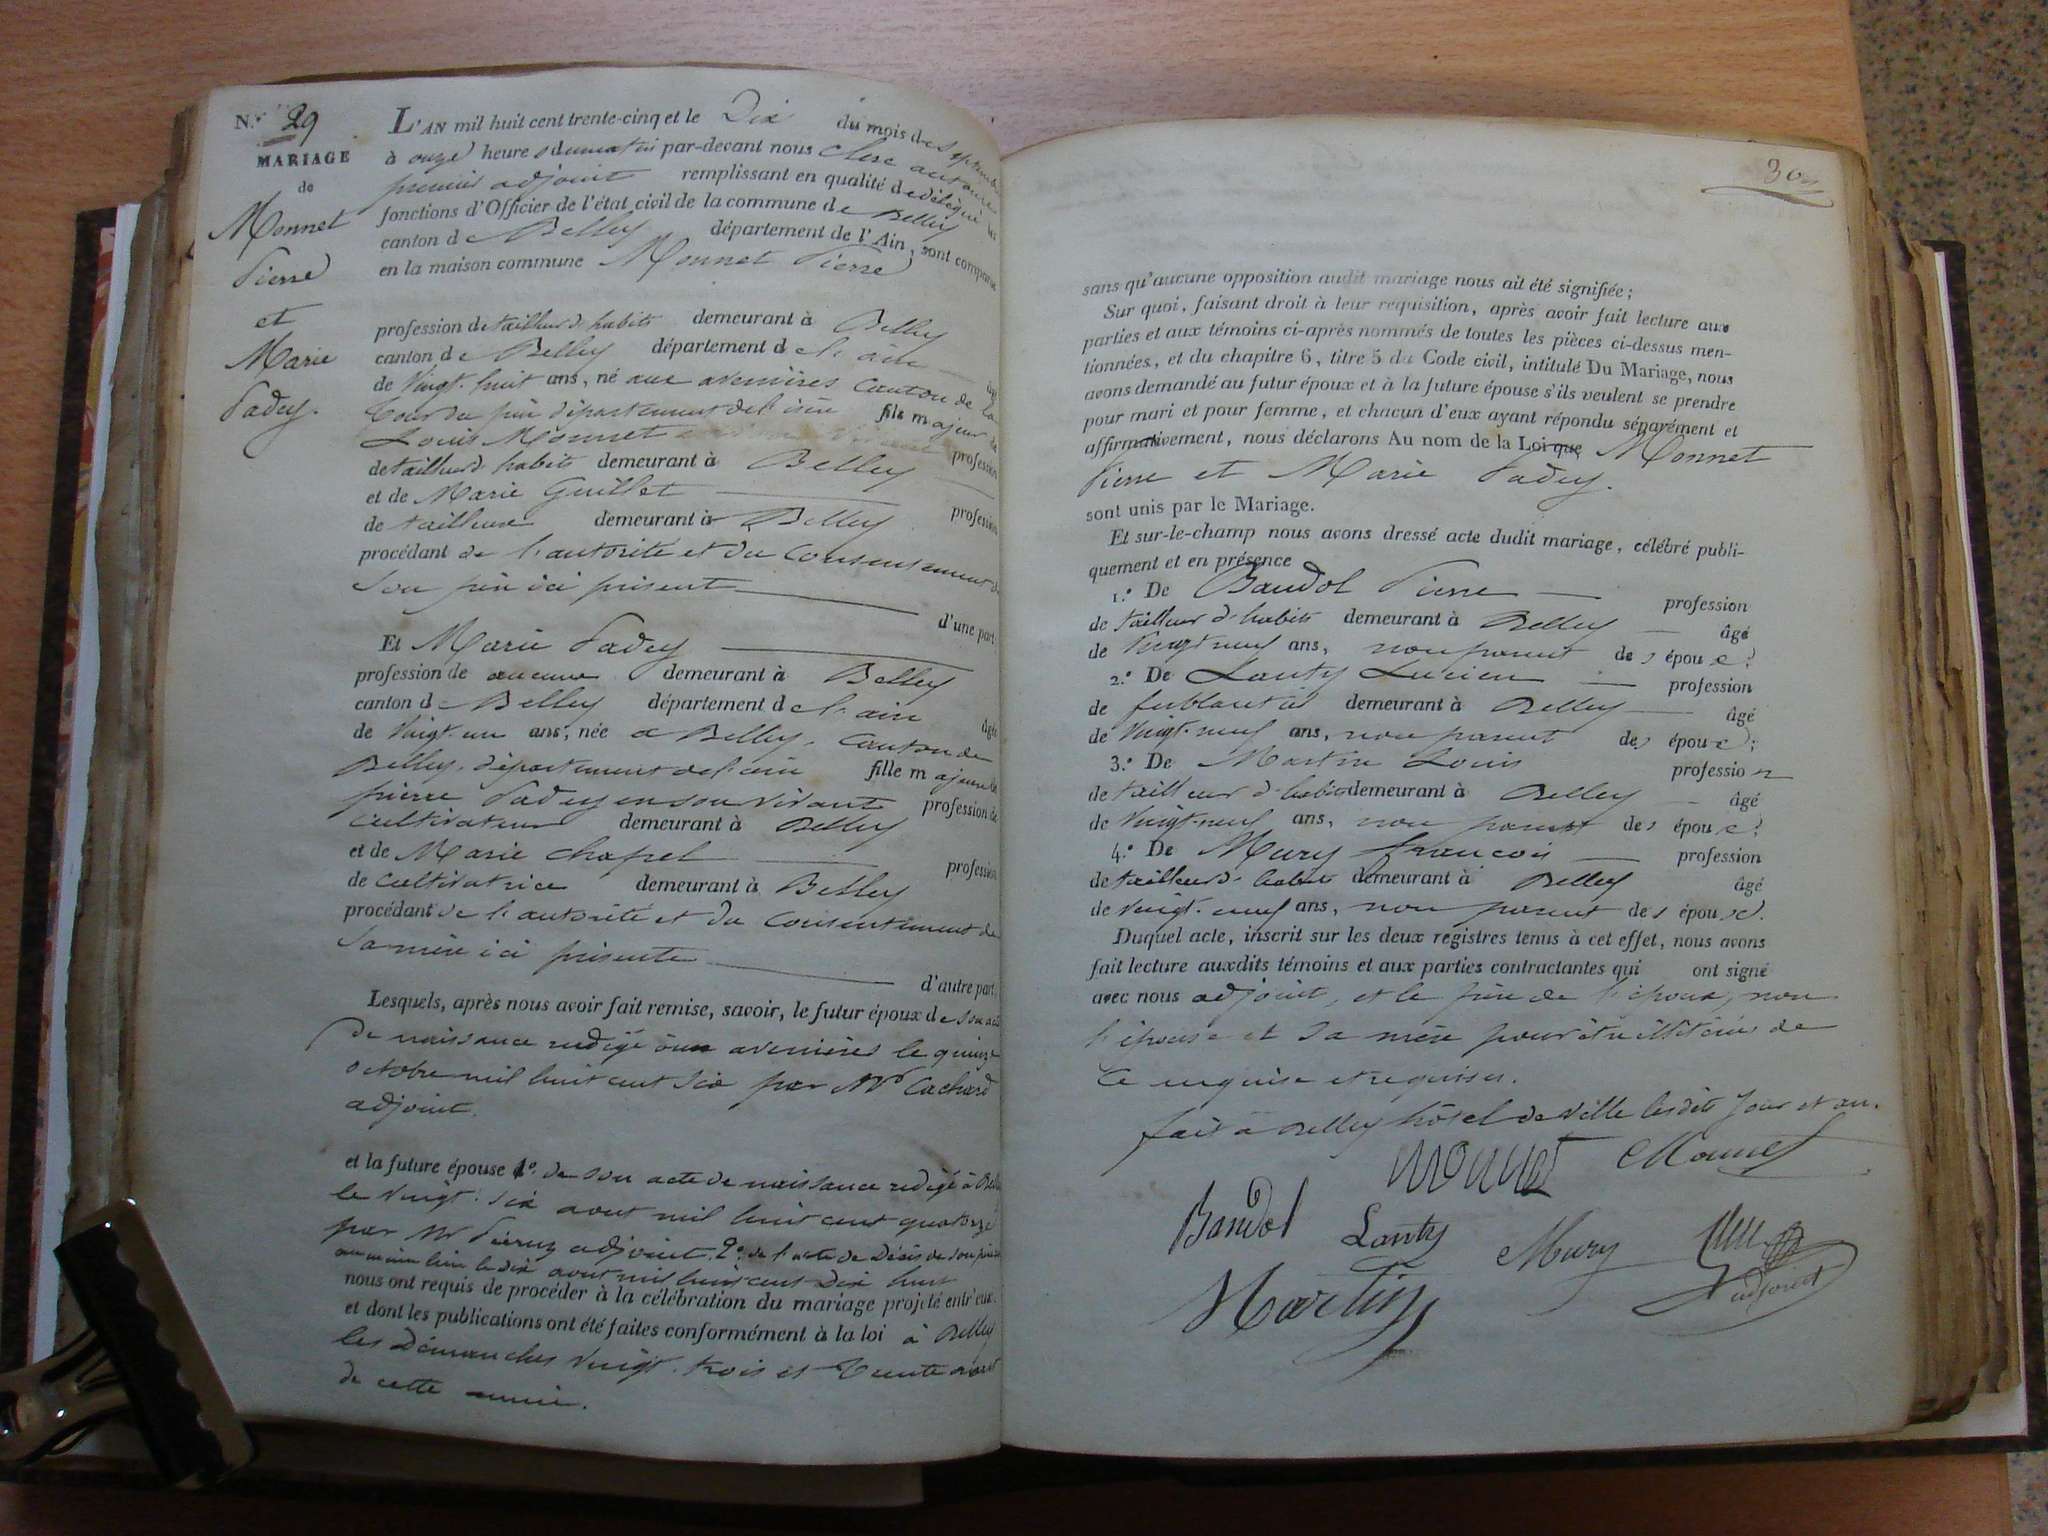 N.º 29
MARIAGE
de
Monnet
Pierre
et
Marie
Padey.
L'AN mil huit cent trente-cinq et le Dix du mois de septembre
à onze heures du matin par-devant nous Clerc antoine
premier adjoint remplissant en qualité de délégué les
fonctions d'Officier de l'état civil de la commune de Belley
canton de Belley département de l'Ain, sont comparus
en la maison commune Monnet Pierre
profession de tailleur d'habits demeurant à Belley
canton de Belley département de l'ain âgé
de vingt-huit ans, né aux avenières Canton de la
tour du pin département de l'isère fils majeur de
Louis Monnet profession
de tailleur d'habits demeurant à Belley
et de Marie Guillet profession
de tailleuse demeurant à Belley
procédant de l'autorité et du consentement de
son père ici présent
d'une part.
Et Marie Padey
profession de aucune demeurant à Belley
canton de Belley département de l'ain âgée
de vingt-un ans, née à Belley, Canton de
Belley, département de l'ain fille majeure de
pierre Padey en son vivant profession de
cultivateur demeurant à Belley
et de Marie Chapel profession
de cultivatrice demeurant à Belley
procédant de l'autorité et du consentement de
sa mère ici présente
d'autre part.
Lesquels, après nous avoir fait remise, savoir, le futur époux de son acte
de naissance rédigé aux avenières le quinze
octobre mil huit cent six par Mr Cachard
adjoint.
et la future épouse 1º. de son acte de naissance rédigé à Belley
le vingt-six aout mil huit cent quatorze
par Mr adjoint. 2º. de l'acte de décès de son père
au même lieu le dix aout mil huit cent dix huit
nous ont requis de procéder à la célébration du mariage projeté entr'eux,
et dont les publications ont été faites conformément à la loi à Belley
les Dimanches vingt-trois et trente aout
de cette année.
30
sans qu'aucune opposition audit mariage nous ait été signifiée;
Sur quoi, faisant droit à leur requisition, après avoir fait lecture aux
parties et aux témoins ci-après nommés de toutes les pièces ci-dessus men-
tionnées, et du chapitre 6, titre 5 du Code civil, intitulé Du Mariage, nous
avons demandé au futur époux et à la future épouse s'ils veulent se prendre
pour mari et pour femme, et chacun d'eux ayant répondu séparément et
affirmativement, nous déclarons Au nom de la Loi que Monnet
Pierre et Marie Padey.
sont unis par le Mariage.
Et sur-le-champ nous avons dressé acte dudit mariage, célébré publi-
quement et en présence
1.º De Baudol Pierre profession
de tailleur d'habits demeurant à Belley âgé
de vingt-neuf ans, non parent des époux;
2.º De Lanty Lucien profession
de ferblantier demeurant à Belley âgé
de vingt-neuf ans, non parent des époux;
3.º De Martin Louis profession
de tailleur d'habits demeurant à Belley âgé
de vingt-neuf ans, non parent des époux;
4.º De Mury françois profession
de tailleur d'habits demeurant à Belley âgé
de vingt-neuf ans, non parent des époux.
Duquel acte, inscrit sur les deux registres tenus à cet effet, nous avons
fait lecture auxdits témoins et aux parties contractantes qui ont signé
avec nous adjoint, et le père de l'époux, non
l'épouse et sa mère pour être illitérées de
ce enquise et requises.
fait à Belley hôtel de ville lesdits jour et an.
Monnet Monnet
Baudol Lanty Mury
Martin adjoint